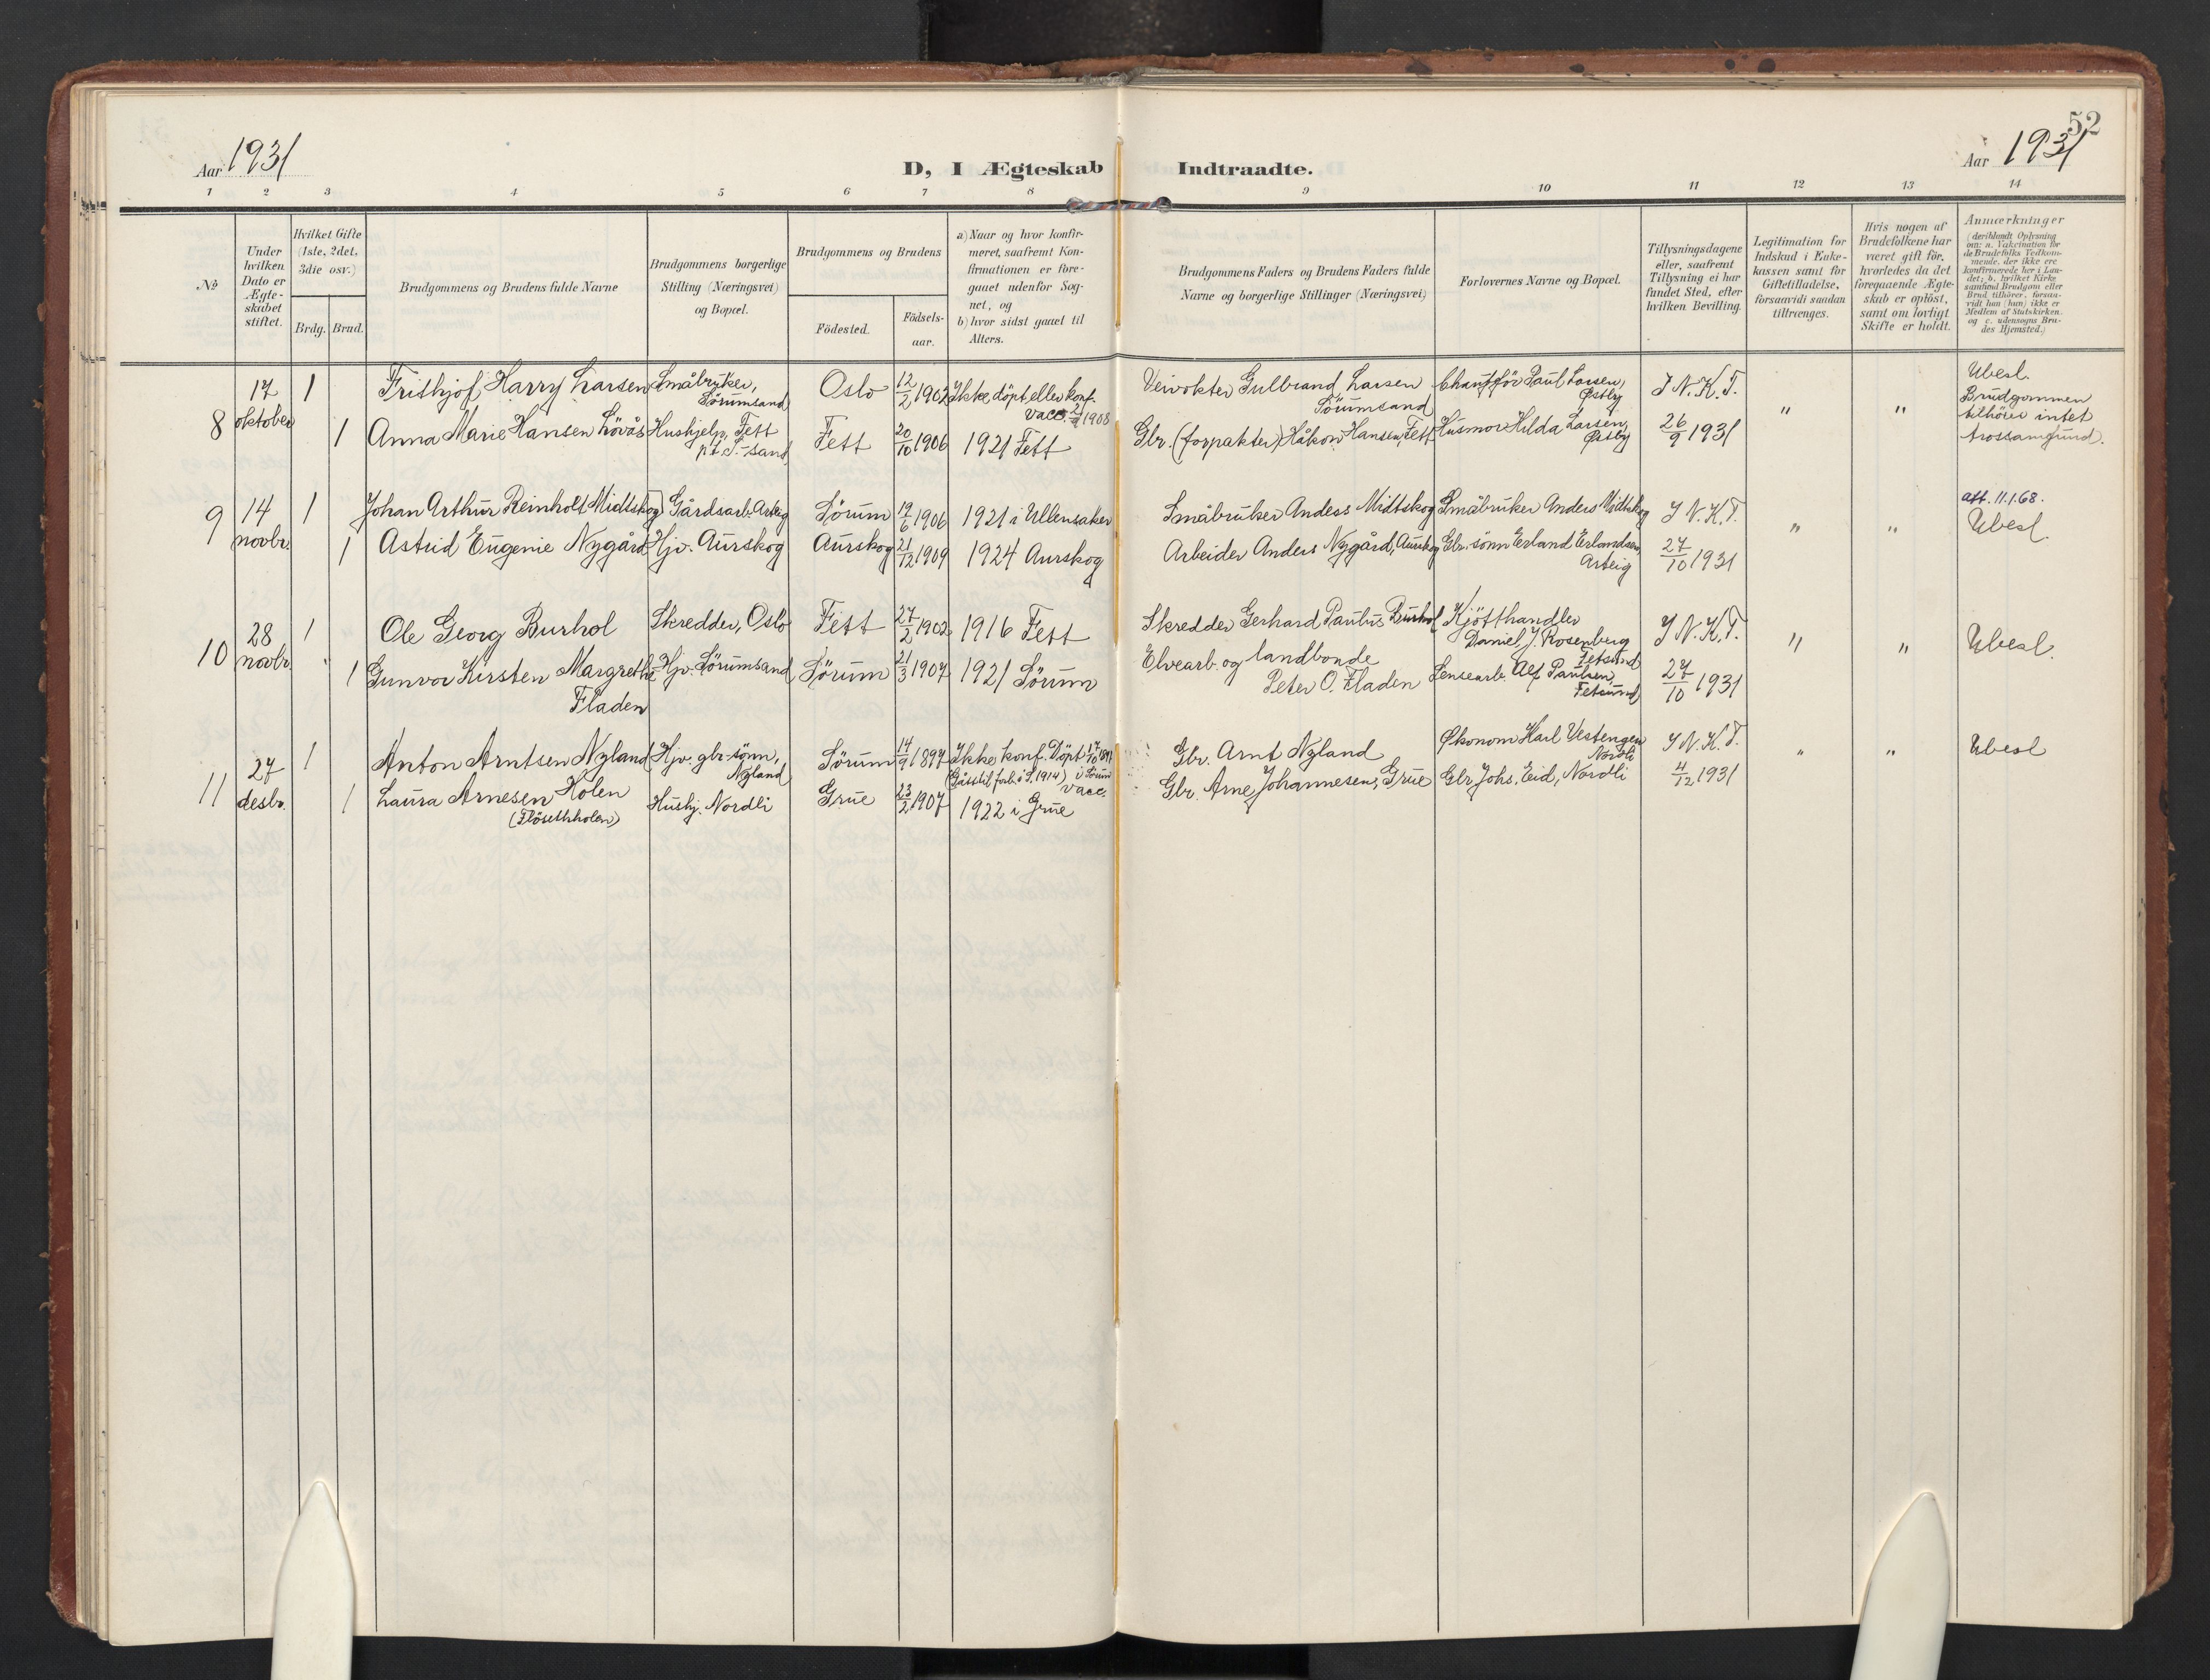 52
Aar 1931
D, I Ægteskab Indtraadte.
Aar 1931
1 2 3 4 5 6 7 8 9 10 11 12 13 14
No
Under hvilken Dato er Ægte-skabet stiftet.
Hvilket Gifte (1ste, 2det, 3die osv.)
Brdg. Brud.
Brudgommens og Brudens fulde Navne
Brudgommens borgerlige Stilling (Næringsvei) og Bopæl.
Brudgommens og Brudens
Födested.
Födsels-aar.
a) Naar og hvor konfir-
meret, saafremt Kon-
firmationen er fore-
gaaet udenfor Sog-
net, og
b) hvor sidst gaaet til
Alters.
Brudgommens Faders og Brudens Faders fulde
Navne og borgerlige Stillinger (Næringsvei)
Forlovernes Navne og Bopæl.
Tillysningsdagene
eller, saafremt
Tillysning ei har
fundet Sted, efter
hvilken Bevilling.
Legitimation for
Indskud i Enke-
kassen samt for
Giftetilladelse,
forsaavidt saadan
tiltrænges.
Hvis nogen af
Brudefolkene har
været gift för,
hvorledes da det
foregaaende Ægte-
skab er oplöst,
samt om lovligt
Skifte er holdt.
Anmærkninger
(deriblandt Oplysning
om: a. Vakcination for
de Brudefolks Vedkom-
mende, der ikke ere
konfirmerede her i Lan-
det; b. hvilket Kirke-
samfund Brudgom eller
Brud tilhörer, forsaa-
vidt han (hun) ikke er
Medlem af Statskirken.
og c. udensogns Bru-
des Hjemsted.)
8
17 oktober
1
Frithjof Harry Larsen
Småbruker, Sörumsand
Oslo
12/2 1902
Ikke döpt eller konf. vacc. 1908
Veivokter Gulbrand Larsen Sörumsand
Chaufför Paul Larsen, Østby
I N. K. T.
"
"
Ubesl.
Brudgommen
tilhörer intet
trossamfund.
1
Anna Marie Hansen Lövås
Hushjelp, Fett p.t. S.-sand
Fett
20/10 1906
1921 Fett
Gbr. (forpakter) Håkon Hansen, Fett
Husmor Hilda Larsen, Østby
26/9 1931
9
14 novbr.
1
Johan Arthur Reinholt Midtskog
Gårdsarb. Arteig
Sörum
19/6 1906
1921 i Ullensaker
Småbruker Anders Midtskog
Småbruker Anders Midtskog
I N. K. T.
"
"
att. 11.1.68.
Ubesl.
1
Astrid Eugenie Nygård
Hjv. Aurskog
Aurskog
21/12 1909
1924 Aurskog
Arbeider Anders Nygård, Aurskog
Gbr. sönn Erland Erlandsen Arteig
27/10 1931
10
28 novbr.
1
Ole Georg Burhol
Skredder, Oslo
Fett
27/2 1902
1916 Fett
Skredder Gerhard Paulus Burhol
Kjötthandler
Daniel J. Rosenberg
Fetsund
I N. K. T.
"
"
Ubesl.
1
Gunvor Kirsten Margrethe
Fladen
Hjv. Sörumsand
Sörum
21/3 1907
1921 Sörum
Elvearb. og landbonde
Peter O. Fladen
Lensearb. Alf Paulsen,
Fetsund
27/10 1931
11
27 desbr.
1
Anton Arntsen Nyland
Hjv. gbr.-sönn, Nyland
Sörum
14/9 1897
Ikke konf. Döpt 17/10 1897 i Sörum
(Gåsstil forb. i S. 1914) vacc.
Gbr. Arnt Nyland
Økonom Karl Vestengen Nordli
I N. K. T.
"
"
Ubesl
1
Laura Arnesen Holen
(Flösethholen)
Hushj. Nordli
Grue
23/2 1907
1922 i Grue
Gbr. Arne Johannesen, Grue
Gbr. Johs. Eid, Nordli
4/12 1931